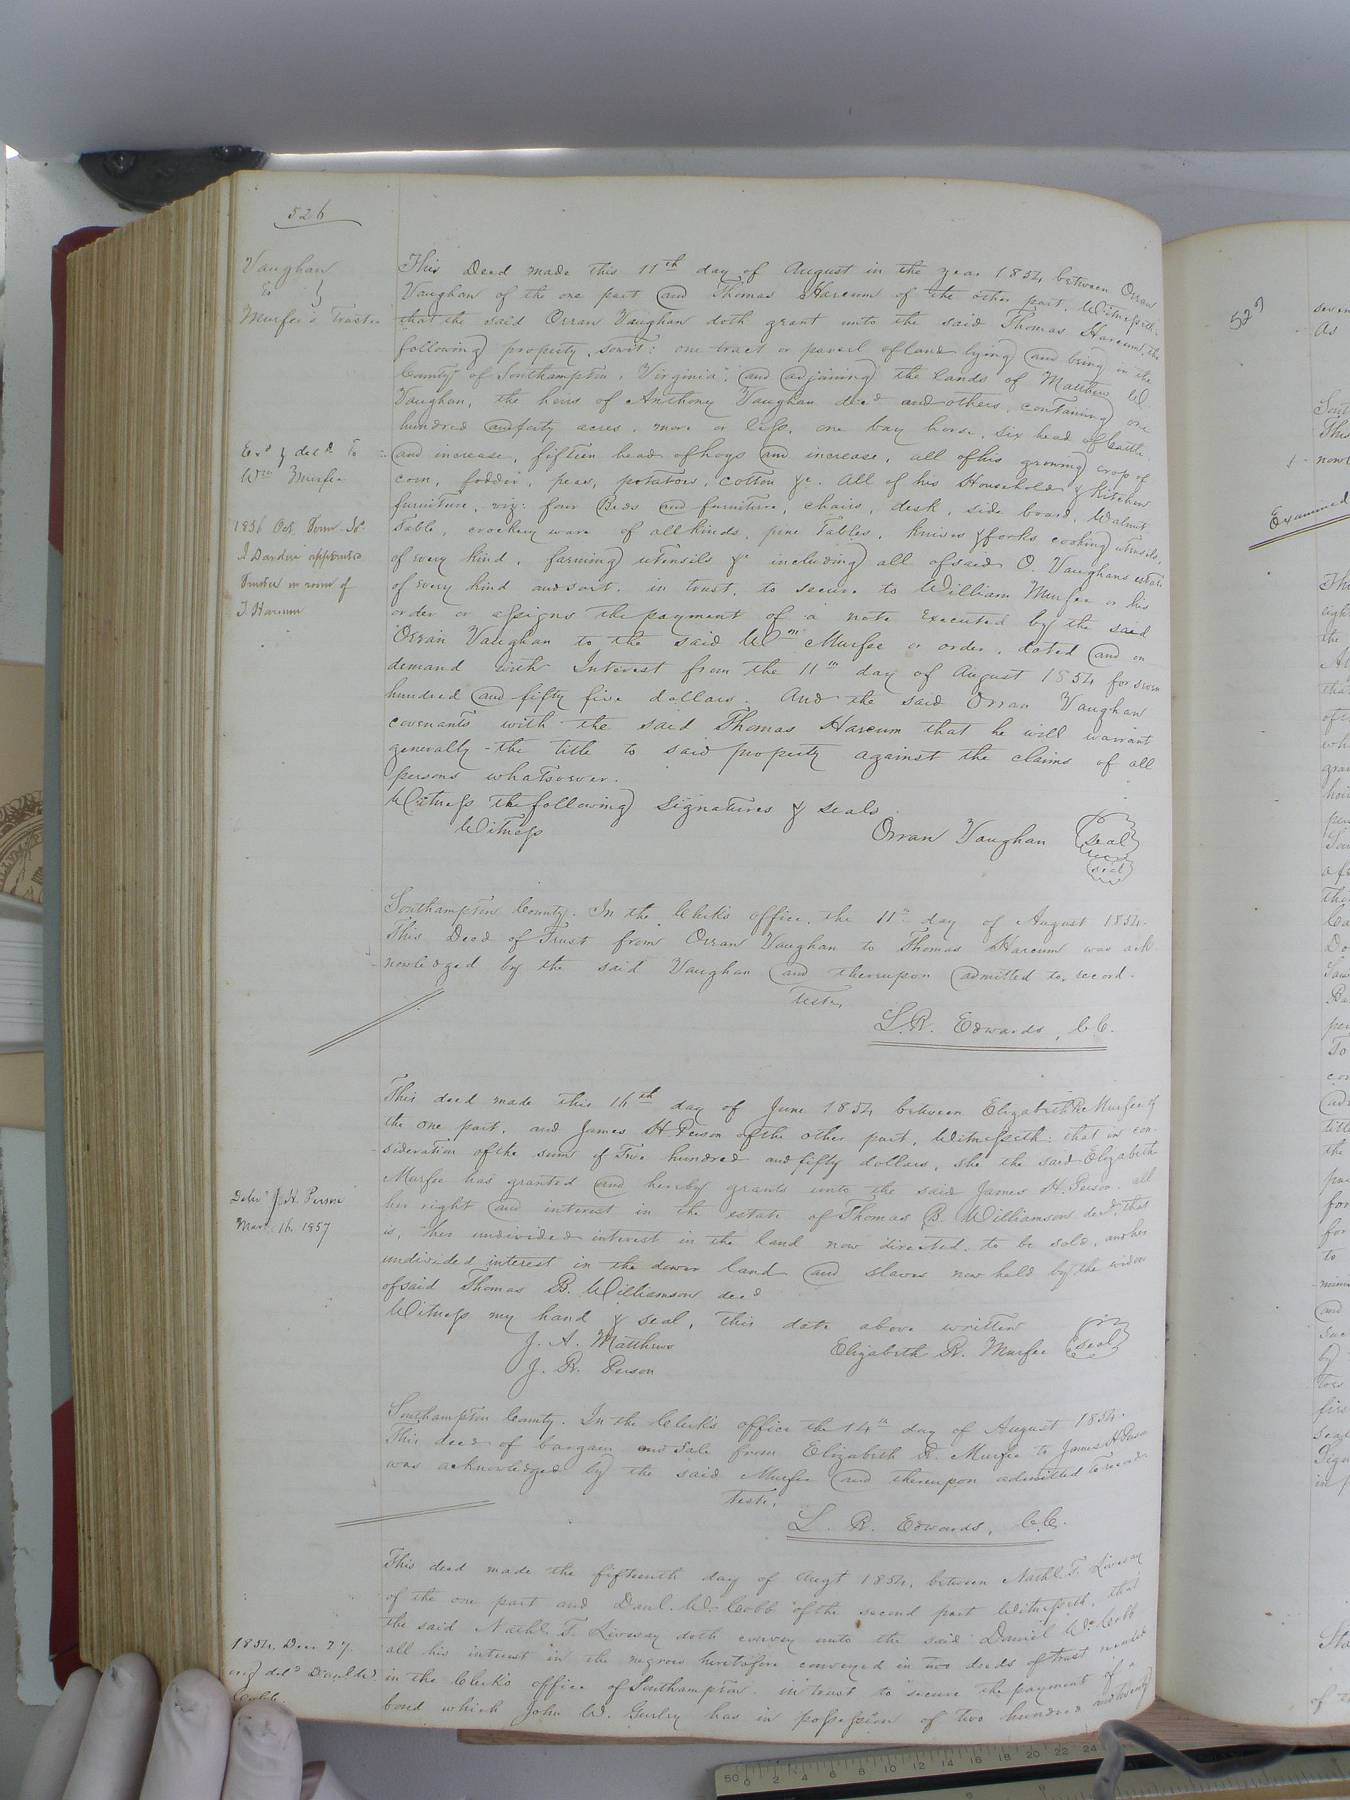 526
Vaughan
To }
Murfee's Trustee
This Deed made this 11th day of August in the year 1854 between Orran
Vaughan of the one part and Thomas Harcum of the other part. Witnesseth:
that the said Orran Vaughan doth grant unto the said Thomas Harcum, the
following property, towit: one tract or parcel of land lying and being in the
County of Southampton, Virginia, and adjoining the lands of Matthew W.
Vaughan, the heirs of Anthony Vaughan decd and others, containing one
hundred and forty acres, more or less, one bay horse, six head of cattle
Exd & deld To
Wm Murfee
and increase, fifteen head of hogs and increase, all of his growing crop of
corn, fodder, peas, potatoes, cotton &c. All of his Household & Kitchen
furniture, viz: four Beds and furniture, chairs, desk, side board, Walnut
table, crockery ware of all kinds, pine Tables, knives & forks cooking utensils,
1856 Oct. Term
J Darden appointed
Trustee in room of
T Harcum
of every kind, farming utensils &c including all of said O. Vaughans estate
of every kind and sort. in trust, to secure to William Murfee or his
order or assigns the payment of a note Executed by the said
Orran Vaughan to the said Wm Murfee or order, dated and on
demand with Interest from the 11th day of August 1854 for seven
hundred and fifty five dollars. And the said Orran Vaughan
covenants with the said Thomas Harcum that he will warrant
generally the title to said property against the claims of all
persons whatsoever.
Witness the following signatures & seals
Witness
Orran Vaughan seal
seal
Southampton County. In the Clerk's office, the 11th day of August 1854.
This Deed of Trust from Orran Vaughan to Thomas Harcum was ack
nowledged by the said Vaughan and thereupon admitted to record.
Teste,
L. R. Edwards, C.C.
This deed made this 16th day of June 1854 between Elizabeth R. Murfee of
the one part, and James H Person of the other part, Witnesseth: that in con
sideration of the sum of Five hundred and fifty dollars, she the said Elizabeth
Murfee has granted and hereby grants unto the said James H. Person, all
Delivd J. H. Person
Mar. 16 1857
her right and interest in the estate of Thomas B. Williamson decd, that
is, her undivided interest in the land now directed to be sold, and her
undivided interest in the dower land and slaves now held by the widow
of said Thomas B. Williamson decd
Witness my hand & seal, this date above written
J. A. Matthews
Elizabeth R. Murfee seal
J. R. Person
Southampton County. In the Clerk's office the 14th day of August 1854.
This deed of bargain and sale from Elizabeth R. Murfee to James H Person
was acknowledged by the said Murfee and thereupon admitted to record.
Teste,
L. R. Edwards, C.C.
This deed made the fifteenth day of Augt 1854, between Nathl. T. Livesay
of the one part and Danl. W. Cobb of the second part Witnesseth, that
the said Nathl. T. Livesay doth convey unto the said Daniel W. Cobb
1854. Decr 27
deld Daniel W.
Cobb
all his interest in the negroes heretofore conveyed in two deeds of trust recorded
in the Clerk's office of Southampton. in trust to secure the payment of a
bond which John W. Gurley has in possession of two hundred and twenty
527
Examined